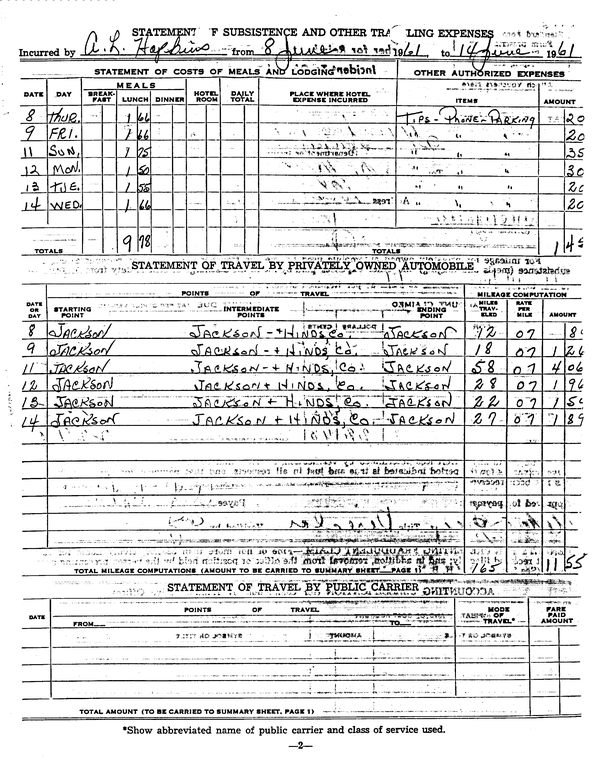 STATEMENT OF SUBSISTENCE AND OTHER TRAVELING EXPENSES
Incurred by A. L. Hopkins from 8 June 1961 to 14 June 1961
STATEMENT OF COSTS OF MEALS AND LODGING OTHER AUTHORIZED EXPENSES
DATE DAY MEALS BREAK-FAST LUNCH DINNER HOTEL ROOM DAILY TOTAL PLACE WHERE HOTEL EXPENSE INCURRED ITEMS AMOUNT
8 THUR. 1 66 TIPS - PHONE - PARKING 20
9 FRI. 1 66 " " 20
11 SUN. 1 75 " " 35
12 MON. 1 50 " " 30
13 TUE. 1 55 " " 20
14 WED. 1 66 " " 20
TOTALS 9 78 TOTALS 1 45
STATEMENT OF TRAVEL BY PRIVATELY OWNED AUTOMOBILE
POINTS OF TRAVEL MILEAGE COMPUTATION
DATE OR DAY STARTING POINT INTERMEDIATE POINTS ENDING POINT MILES TRAV-ELED RATE PER MILE AMOUNT
8 JACKSON JACKSON - + HINDS, CO. JACKSON 12 07 84
9 JACKSON JACKSON - + HINDS, CO. JACKSON 18 07 1 26
11 JACKSON JACKSON - + HINDS, CO. JACKSON 58 07 4 06
12 JACKSON JACKSON + HINDS, CO. JACKSON 28 07 1 96
13 JACKSON JACKSON + HINDS, CO. JACKSON 22 07 1 54
14 JACKSON JACKSON + HINDS, CO. JACKSON 27 07 1 89
TOTAL MILEAGE COMPUTATIONS (AMOUNT TO BE CARRIED TO SUMMARY SHEET, PAGE 1) 165 11 55
STATEMENT OF TRAVEL BY PUBLIC CARRIER
DATE POINTS OF TRAVEL MODE OF TRAVEL* FARE PAID AMOUNT
FROM TO
TOTAL AMOUNT (TO BE CARRIED TO SUMMARY SHEET, PAGE 1)
*Show abbreviated name of public carrier and class of service used.
—2—